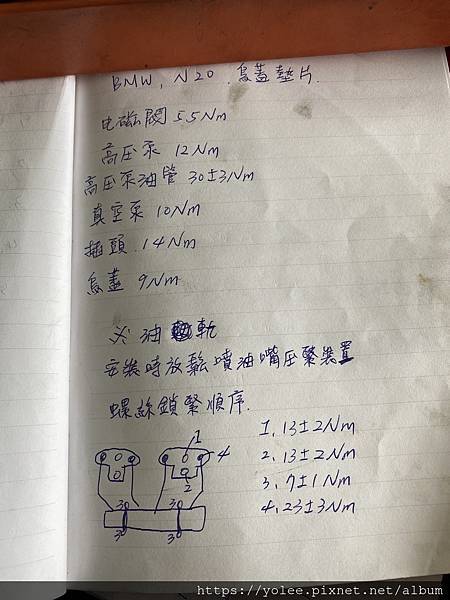 BMW, N20 烏蓋墊片.
电磁閥 5.5Nm
高压泵 12Nm
高压泵油管 30±3Nm
真空泵 10Nm
插頭 14Nm
烏蓋 9Nm
油軌
安裝時放鬆噴油嘴压緊裝置
螺絲鎖緊順序.
1. 13±2Nm
2. 13±2Nm
3. 7±1Nm
4. 23±3Nm
1
4
2
3
3
3
3
https://yolee.pixnet.net/album